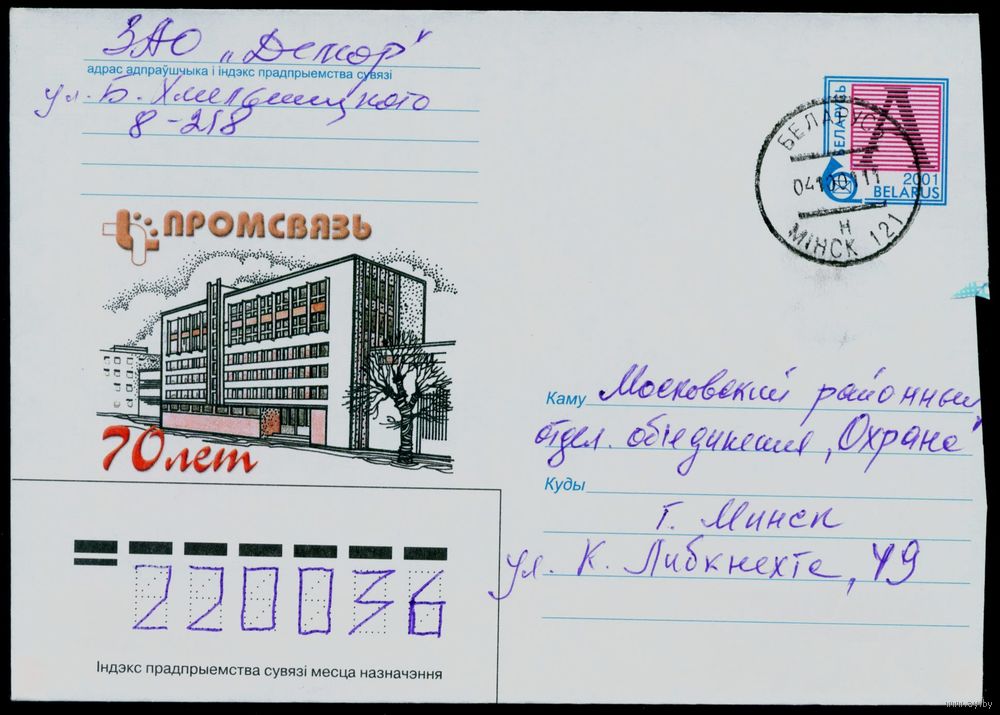 ЗАО „Декор"
адрас адпраўшчыка і індэкс прадпрыемства сувязі
ул. Б. Хмельницкого
8-218
ПРОМСВЯЗЬ
70 лет
БЕЛАРУСЬ
А
2001
BELARUS
БЕЛАРУСЬ
Н
МІНСК 121
Каму Московский районный
отдел. объединения „Охрана"
Куды
г. Минск
ул. К. Либкнехта, 49
220036
Індэкс прадпрыемства сувязі месца назначэння